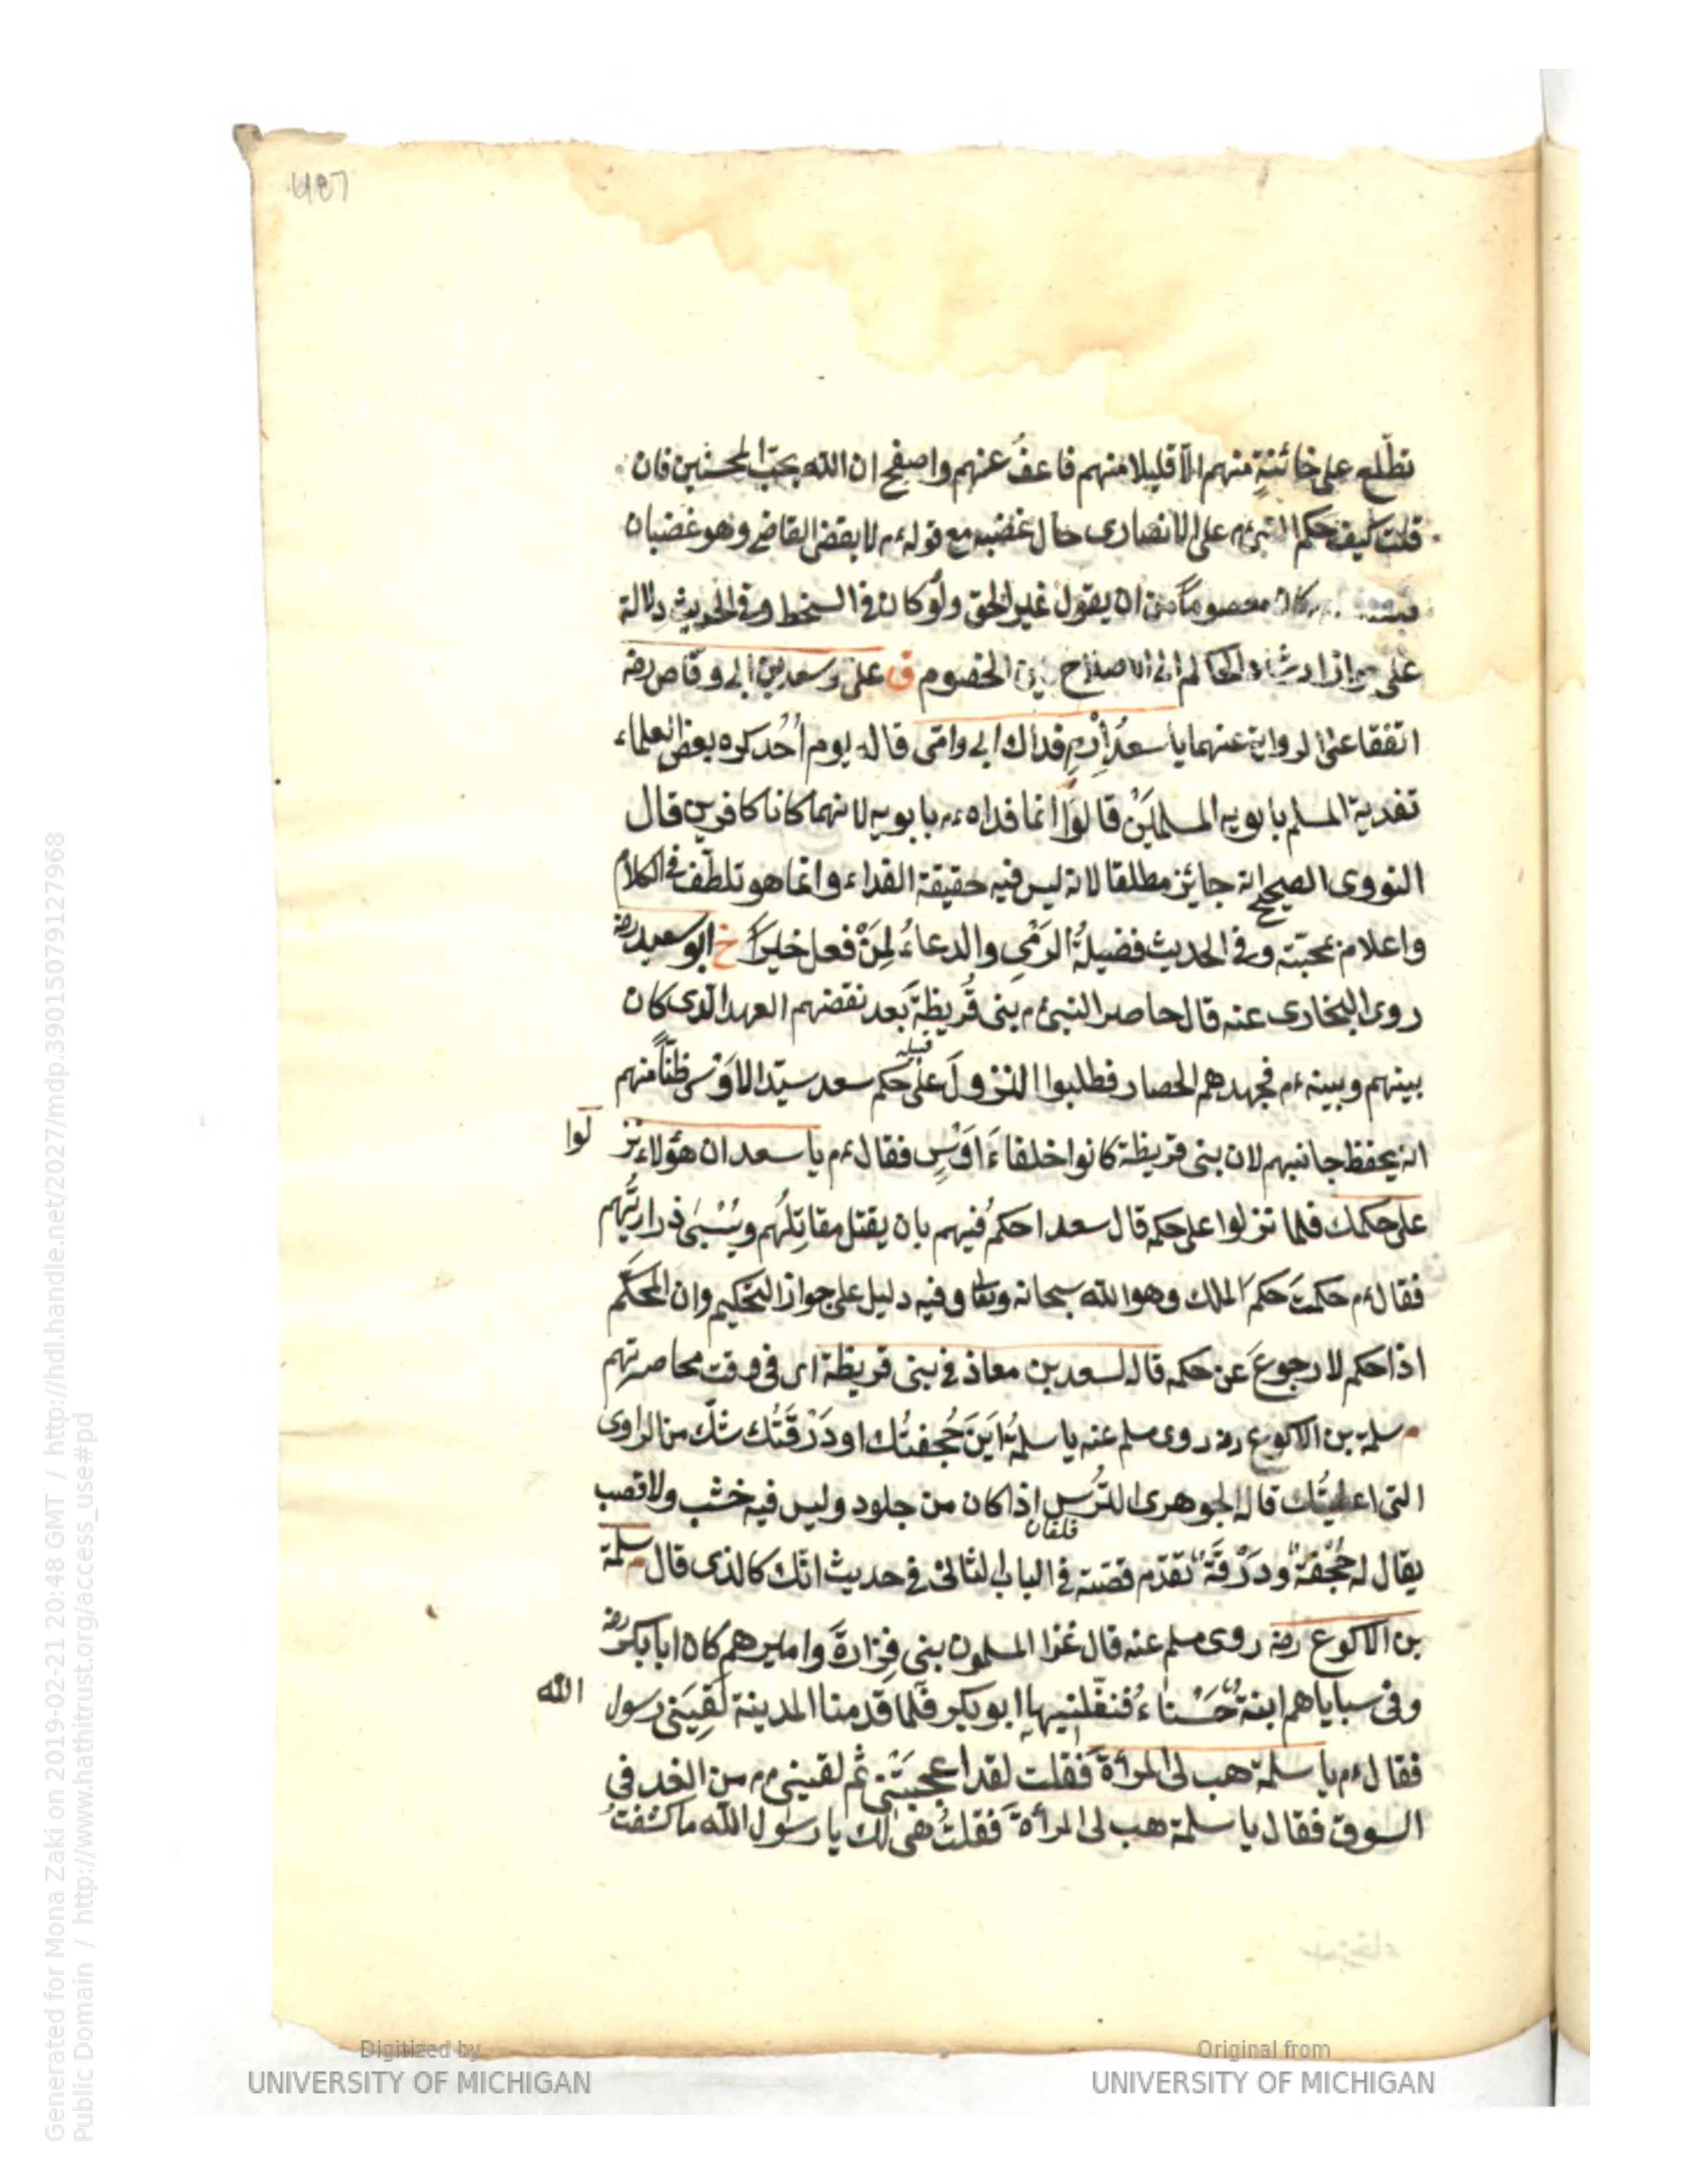 تطّلع على خائنةٍ منهم الّا قليلا منهم فاعفُ عنهم واصفح ان الله يحبّ المحسنين فان
قلت كيف حكم النبىءم على الانصارى حال غضبه مع قولهءم لا يقض القاضى وهو غضبان
كان معصوماً من ان يقول غير الحق ولو كان فى السخط وفى الحديث دلالة
على جواز ارشاد الحاكم الى الاصلاح بين الخصوم ق على وسعد بن ابى وقاص رضه
اتفقا على الرواية عنهما يا سعدُ اِرْمِ فداك ابى وامّى قاله يوم اُحُد كره بعض العلماء
تفدية المسلم بابويه المسلمَيْن قالوا انما فداهءم بابويه لانهما كانا كافرين قال
النووى الصحيح انه جايز مطلقا لانه ليس فيه حقيقة الفداء وانما هو تلطّف فى الكلام
واعلام محبّته وفى الحديث فضيلةُ الرَمْىِ والدعاءُ لِمَنْ فعل خيراً خ ابو سعيد رضه
روى البخارى عنه قال حاصر النبىءم بنى قُريظةَ بعد نقضهم العهد الذى كان
بينهم وبينهءم فجهدهم الحصار فطلبوا النزولَ على حكم سعد سيّد الاَوْسِ ظنّاً منهم
قبيلة
انه يحفظ جانبهم لان بنى قريظة كانوا خلفاءَ اَوْسٍ فقالءم يا سعد ان هؤلاء نز
لوا
على حكمك فلما نزلوا على حكمه قال سعد احكمُ فيهم بان يقتل مقاتِلُهم ويُسْبىٰ ذراريُّهم
فقالءم حكمتَ حكمَ الملك وهو الله سبحانه وتعا وفيه دليل على جواز التحكيم وان المحكَّم
اذا حكم لا رجوعَ عن حكمه قاله لسعد بن معاذ فى بنى قريظة اى فى وقت محاصرتهم
م سلمة بن الاكوع رضه روى مسلم عنه يا سلمةُ اَيْنَ حُجفتُك او دَرْقَتُك شكّ من الراوى
التى اعطيتُك قاله الجوهرى التُرس اذا كان من جلود وليس فيه خشب ولا قصب
يقال له حُجْفةٌ ودَرْقَةٌ تقدّم قصّته فى الباب الثانى فى حديث انّك كالذى قال م سلمة
بن الاكوع رضه روى مسلم عنه قال غزا المسلمون بنى فِزارةَ واميرهم كان ابا بكر رضه
وفى سباياهم ابنةٌ حَسْناءُ فنفّلنيها ابو بكر فلمّا قدمنا المدينة لَقِيَنى رسول
الله
فقالءم يا سلمة هب لى المرأةَ فقلت لقد اعجبَتْنى ثم لقينىءم من الغد فى
السوق فقال يا سلمة هب لى المرأةَ فقلتُ هى لك يا رسول الله ما كشفتُ
Digitized by
UNIVERSITY OF MICHIGAN
Original from
UNIVERSITY OF MICHIGAN
Generated for Mona Zaki on 2019-02-21 20:48 GMT / http://hdl.handle.net/2027/mdp.39015079127968
Public Domain / http://www.hathitrust.org/access_use#pd